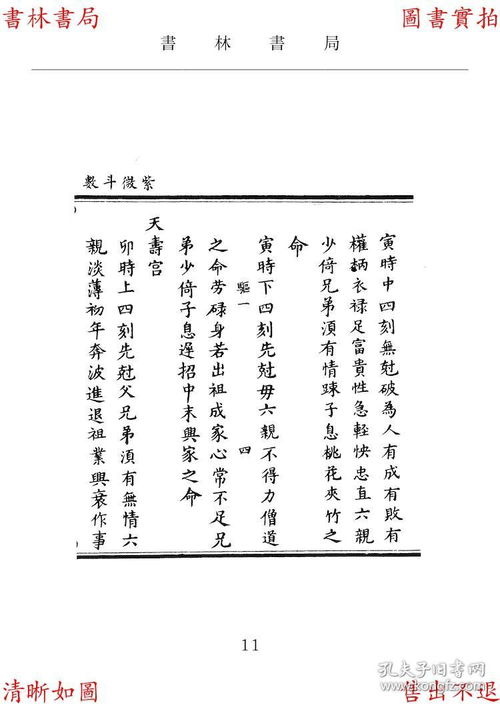 書林書局
圖書實拍
書林書局
紫微斗數
寅時中四刻無尅破為人有成有敗有
權柄衣禄足富貴性急輕快忠直六親
少倚兄弟湏有情踈子息桃花夾竹之
命
寅時下四刻先尅毋六親不得力僧道
驅一
四
之命劳碌身若出祖成家心常不足兄
弟少倚子息遅招中末興家之命
天壽宫
卯時上四刻先尅父兄弟湏有無情六
親淡薄初年奔波進退祖業興衰作事
11
清晰如圖
售出不退
孔夫子旧书网
www.kongfz.com